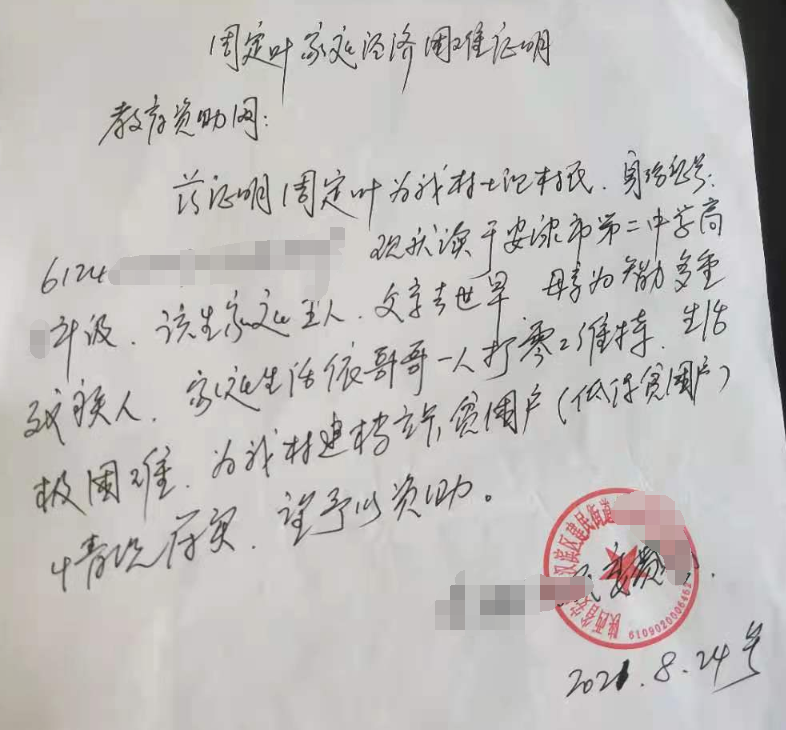 周定叶家庭经济困难证明
教育资助网：
兹证明周定叶为我村土记村民．身份证号：
6124 现就读于安康市第二中学高
年级．该生家庭五人．父亲去世早 母亲为智力多重
残疾人．家庭生活依哥哥一人打零工维持．生活
极困难．为我村建档立卡贫困户（低保贫困户）
情况属实．望予以资助。
陕西省安 汉滨区建民街道
民委员
6109020006462
2021.8.24号